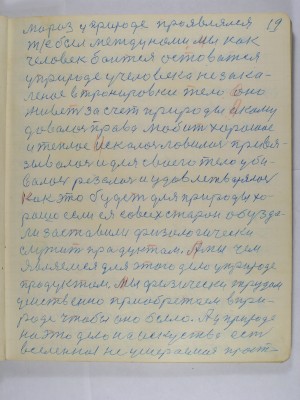 19
мороз у природе проявлялся
тже был между нами мы как
человек боится остоватся
у природе у человека не зака-
леное в тронировки тело оно
живет за счет природы а кому
давалоя права мобит хорошое
и теплое искалоя ловилоя превя-
зывалоя и для своего тело уби-
валоя резалоя и удовлетвулялоя
как это будет для природы хо-
рашо если ея со всех старон обузда-
ли заставили физологически
служит продуктам. А мы чем
являемся для этого дело у природе
продуктом. Мы физически трудам
умствено приобретаем в при-
роде чтобы оно было. А у природе
на это дело на искуства ест
вселеным не умераймая прост-